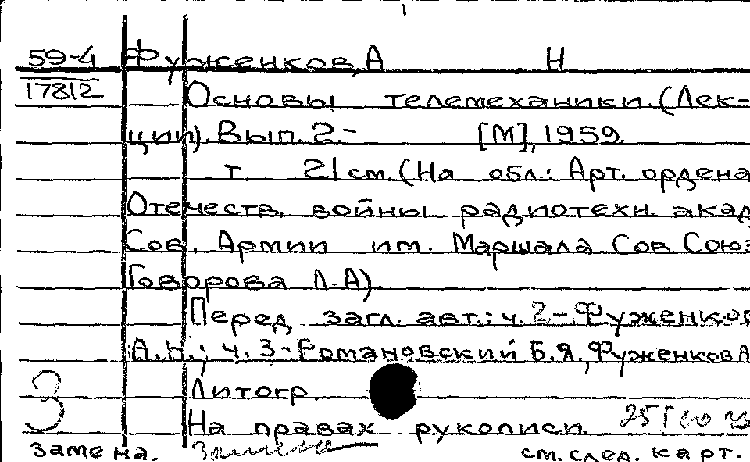 59-4 Фуженков, А Н
17812 Основы телемеханики. (Лек-
ции). Вып. 2.- [М], 1959.
т 21 см. (На обл.: Арт. ордена
Отечеств. войны радиотехн. акад
Сов. Армии им. Маршала Сов Союз
Говорова Л.А)
Перед загл. авт.: ч. 2 - Фуженков
А.Н.; ч. 3 - Романовский Б.Я., Фуженков А
Литогр.
3 На правах рукописи.
замена. Замена см. след. карт.